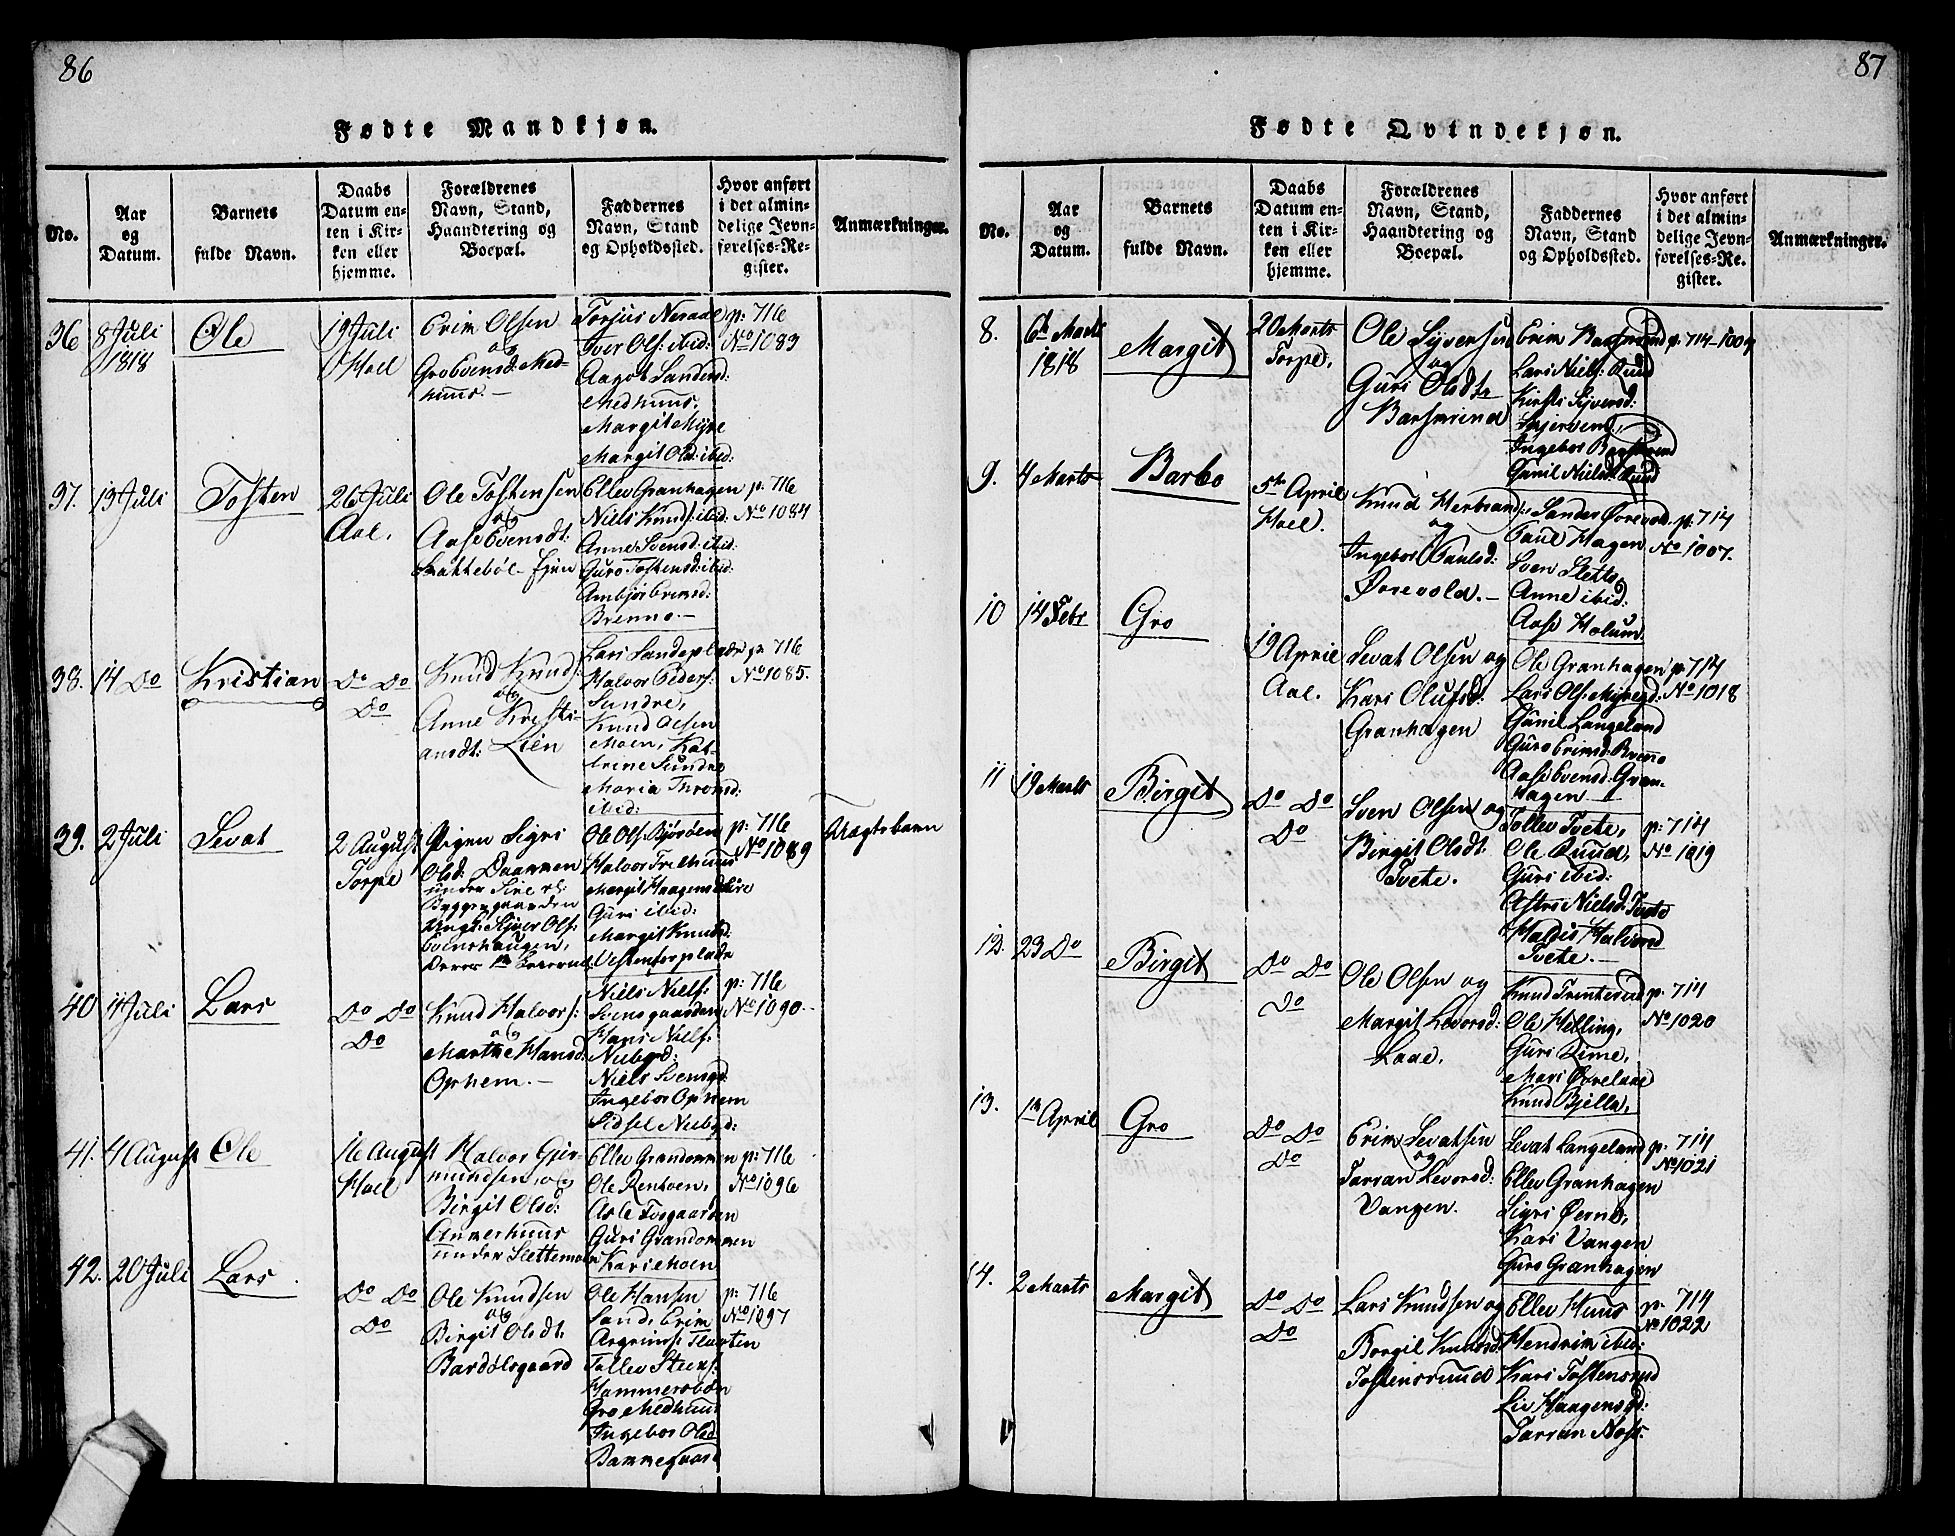 86
Fødte Mandkjøn.
No.
Aar
og
Datum.
Barnets
fulde Navn.
Daabs
Datum en-
ten i Kir-
ken eller
hjemme.
Forældrenes
Navn, Stand,
Haandtering og
Boepæl.
Faddernes
Navn, Stand
og Opholdssted.
Hvor anført
i det almin-
delige Jevn-
førelses-Re-
gister.
Anmærkninger.
36
8 Juli
1818
Ole
19 Juli
Hoel
Erik Olsen
og
Gro Evensd: Med-
huus.
Torjus Neraal
Iver Ols: ibid:
Aagot Sandersd:
Medhuus,
Margit Myre
Margit Olsd: ibid:
p: 716
No 1083
37.
13 Juli
Tosten
26 Juli
Aal.
Ole Tostensen
og
Aase Evensdt:
Skattebøl-Ejen
Ellev Granhagen
Niels Knuds: ibid:
Anne Svensd: ibid:
Guro Tostensd: ibid:
Ambjør Eriksd:
Brenno.
p: 716
No 1084
38.
14 Do
Kristian
Do Do
Do
Knud Knuds:
og
Anne Kristi-
ansdt: Lien
Lars Sandeplads
Halvor Peders:
Sundre,
Knud Olsen
Moen, Kat-
rine Sundre
Maria Thromsd:
ibid:
p: 716
No 1085.
39.
2 Juli
Sevat
2 August
Torpe
Pigen Sigri
Olsd: Daammen
under Sire
Ungk: Sjver Ols:
Evenshaugen,
Ole Ols: Bjørøen
Halvor Trelhuus
Margit Haagensd: Sire
Guri ibid:
Margit Knudsd:
Vestentorplads
p: 716
No 1089
Uægte barn
40
4 Juli
Lars
Do Do
Do
Knud Halvors:
og
Marthe Hansd:
Ophem.
Niels Niels:
Svensgaarden
Hans Niels:
Niebgd:
Niels Svensgd:
Ingebor Ophem
Sidsel Niebgd:
p: 716
No 1090
41.
4 August
Ole
16 August
Hoel
Halvor Gjer-
mundsen, og
Birgit Olsd:
Ammerhuus
under Slettemoen
Ellev Grandommen
Ole Renhoen,
Asle Tvsgaarden
Guri Grandommen
Kari Moen
p: 716
No 1096
42.
20 Juli
Lars
Do Do
Do
Ole Knudsen
og
Birgit Olsdt:
Bardølsgaard
Ole Hansen
Sand, Erik
Asgrims: Flaaten
Tollev Steens:
Hammersbøen
Gro Medhuus
Ingebor Olsd
Bammegaard
p: 716
No 1097
87
Fødte Qvindekjøn.
No.
Aar
og
Datum.
Barnets
fulde Navn.
Daabs
Datum en-
ten i Kir-
ken eller
hjemme.
Forældrenes
Navn, Stand,
Haandtering og
Boepæl.
Faddernes
Navn, Stand
og Opholdssted.
Hvor anført
i det almin-
delige Jevn-
førelses-Re-
gister.
Anmærkninger.
8.
6te Marts
1818
Margit
20 Marts
Torpe,
Ole Syversen
og
Guri Olsdtr
Barsmrind
Erik Barsmrind
Lars Niels: Ruud
Kirsti Syversd:
Skjervem,
Ingebor Barsmrind
Gunil Nielsd: Ruud
p: 714-1004
9.
4 Marts
Barbo
5te April
Hoel.
Knud Herbrands:
og
Ingebor Paulsd:
Ørevold.
Sander Ørevold.
Paul Hagen
Sven Sletto
Anne ibid:
Aase Holum
p: 714
No 1007.
10
14 Febr
Gro
19 April
Aal.
Sevat Olsen og
Kari Olufsd:
Granhagen
Ole Granhagen
Lars Ols: Myregd:
Gunil Langeland
Guro Eriksd: Brenno
Aase Evensd: Gran-
hagen
p: 714
No 1018
11
19 Marts
Birgit
Do Do
Do
Sven Olsen og
Birgit Olsdt:
Tvete.
Tollev Tveto,
Ole Ruud,
Guri ibid:
Astri Nielsd: Tveto
Haldis Halvorsd
Tveto.
p: 714
No 1019
12.
23 Do
Birgit
Do Do
Do
Ole Olsen og
Margit Levorsd:
Laae,
Knud Trinterud
Ole Helling,
Guri Lime,
Mari Øvrelaae
Knud Bjella,
p. 714
No 1020
13.
1te April
Gro
Do Do
Do
Erik Sevatsen
og
Tarran Levorsd:
Vangen.
Sevat Langeland
Ellev Granhagen
Sigri Øerno,
Kari Vangen
Guro Granhagen
p. 714
No 1021
14.
2 Marts
Margit
Do Do
Do
Lars Knudsen og
Borgil Knudsd
Tostensruud
Ellev Huus
Hendrik ibid:
Kari Tostensrud
Liv Haagensgd:
Tarran Noss.
p. 714
No 1022